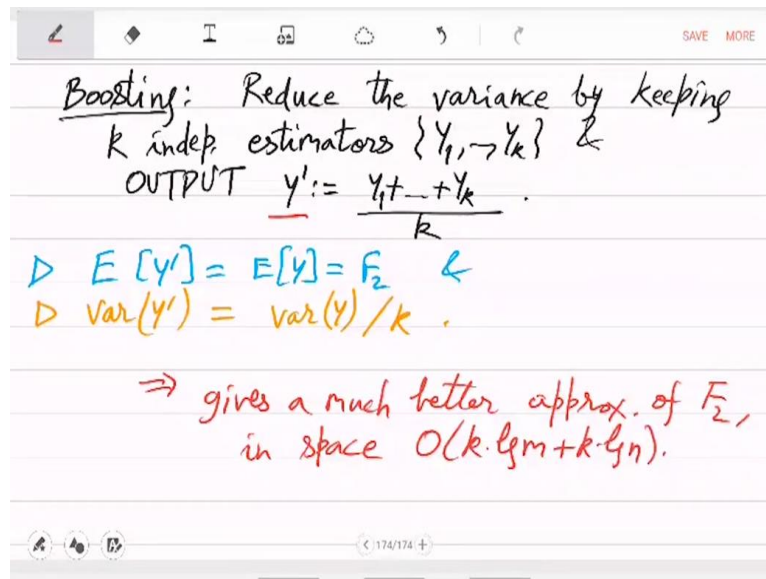 SAVE MORE
Boosting: Reduce the variance by keeping
k indep. estimators {Y₁,→Yₖ} &
OUTPUT Y' := Y₁+...+Yₖ / k .
▷ E[Y'] = E[Y] = F₂ &
▷ var(Y') = var(Y)/k .
⇒ gives a much better approx. of F₂,
in space O(k·lgm+k·lgn).
< 174/174 +